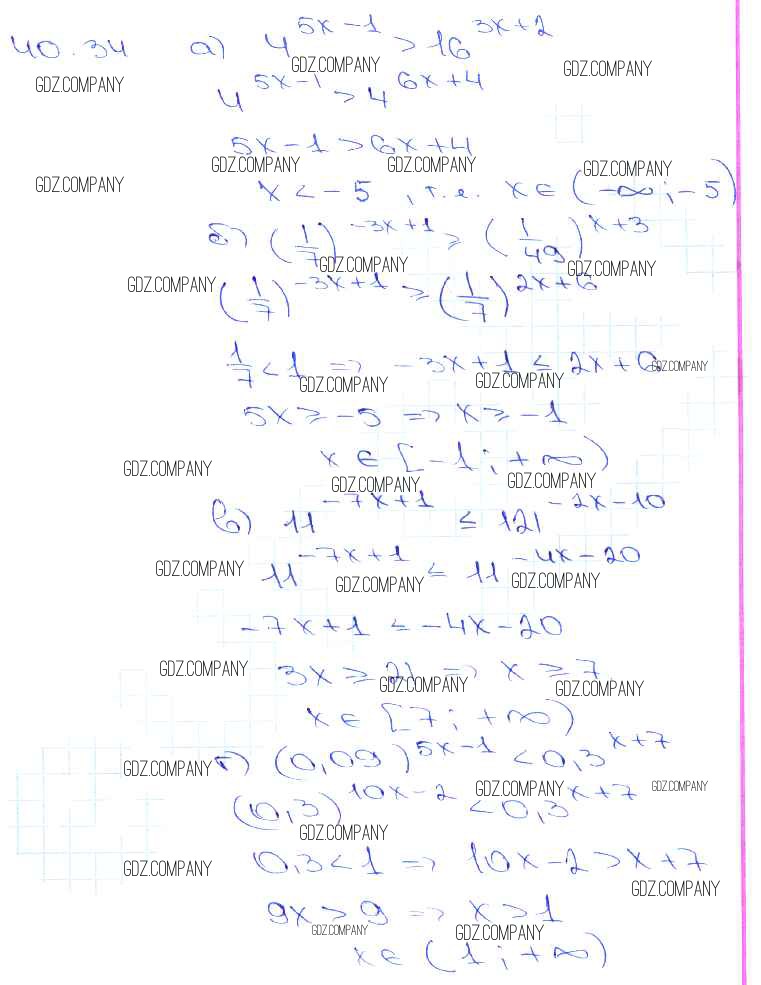 40.34 а) 4^(5x-1) > 16^(3x+2)
GDZ.COMPANY GDZ.COMPANY GDZ.COMPANY
4^(5x-1) > 4^(6x+4)
5x-1 > 6x+4
GDZ.COMPANY GDZ.COMPANY GDZ.COMPANY GDZ.COMPANY
x < -5, т.е. x ∈ (-∞; -5)
б) (1/7)^(-3x+1) ≥ (1/49)^(x+3)
GDZ.COMPANY GDZ.COMPANY GDZ.COMPANY
(1/7)^(-3x+1) ≥ (1/7)^(2x+6)
1/7 < 1 => -3x+1 ≤ 2x+6
GDZ.COMPANY GDZ.COMPANY GDZ.COMPANY
5x ≥ -5 => x ≥ -1
x ∈ [-1; +∞)
GDZ.COMPANY GDZ.COMPANY GDZ.COMPANY
в) 11^(-7x+1) ≤ 121^(-2x-10)
11^(-7x+1) ≤ 11^(-4x-20)
GDZ.COMPANY GDZ.COMPANY GDZ.COMPANY
-7x+1 ≤ -4x-20
3x ≥ 21 => x ≥ 7
GDZ.COMPANY GDZ.COMPANY GDZ.COMPANY
x ∈ [7; +∞)
г) (0,09)^(5x-1) < 0,3^(x+7)
GDZ.COMPANY GDZ.COMPANY GDZ.COMPANY
(0,3)^(10x-2) < 0,3^(x+7)
GDZ.COMPANY
0,3 < 1 => 10x-2 > x+7
GDZ.COMPANY GDZ.COMPANY
9x > 9 => x > 1
GDZ.COMPANY GDZ.COMPANY
x ∈ (1; +∞)